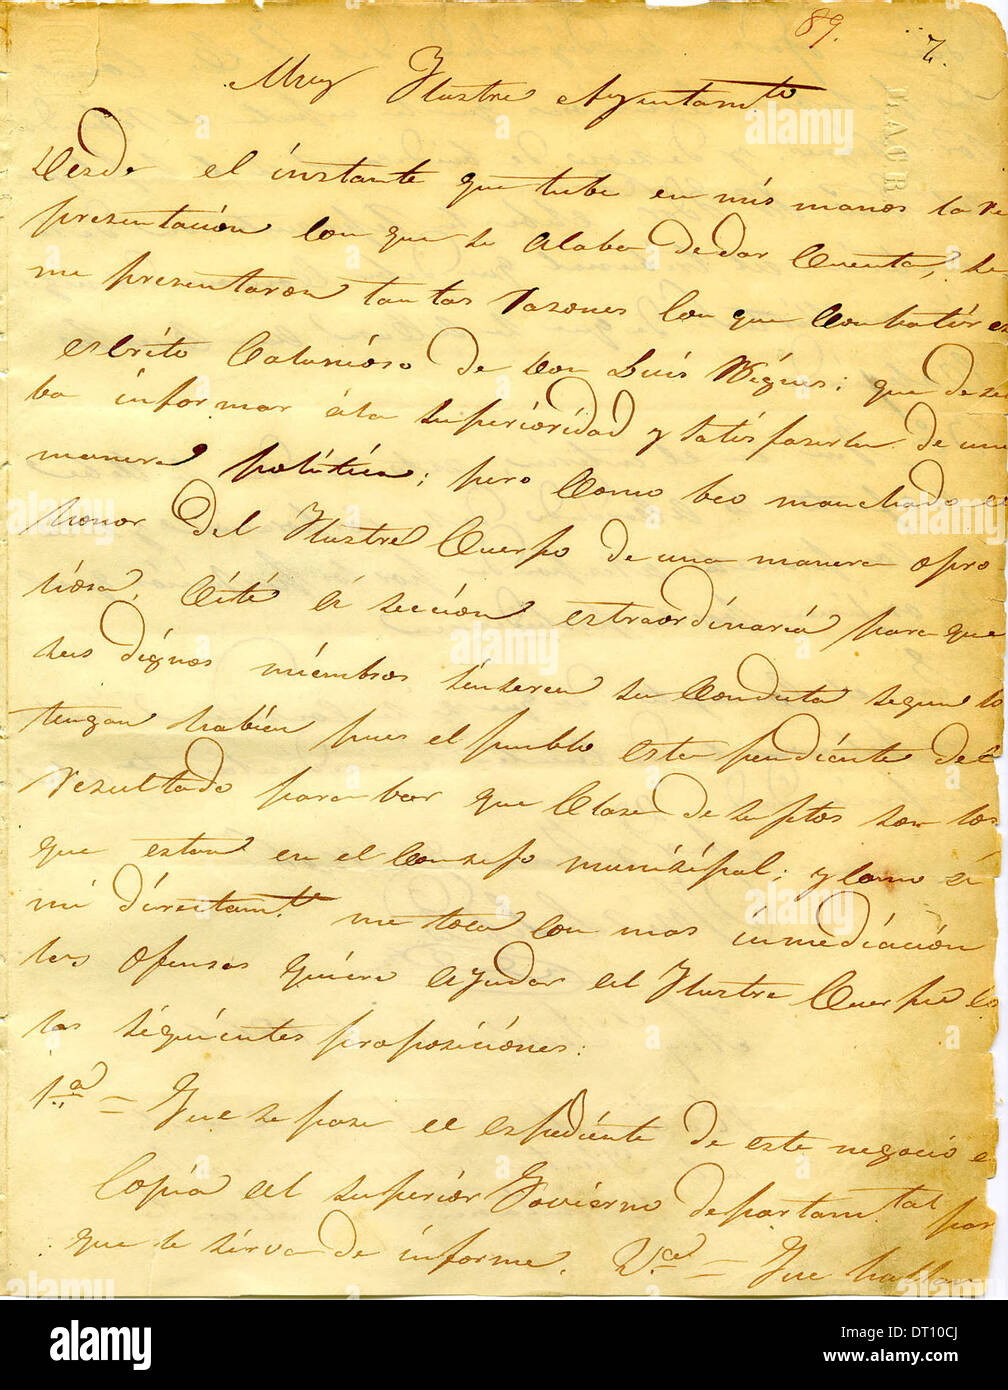 89. 7.
Muy Ylustre Ayuntamto
Desde el instante que tube en mis manos la re
presentacion con que se acaba de dar cuenta, se
me presentaron tantas razones con que combatir es
escrito calunioso de Don Luis Vignes; que desea
ba informar á la superioridad y satisfaserla de una
manera política; pero como beo manchado el
honor del Ylustre Cuerpo de una manera opro
biosa, cité á seccion extraordinaria para que
sus dignos miembros sinseren su conducta segun lo
tengan habien pues el pueblo esta pendiente del
resultado para ber que clase de suptos son los
que estan en el consejo munisipal; y como si
mi directamte me toca con mas inmediacion
las ofensas quiero ayudar al Ylustre Cuerpo co
las siguientes proposiciones:
1.a = Que se pase el espediente de este negocio e
copia al superior Govierno departamtal par
que le sirva de informe. 2.a = Que hallan
HACR
alamy
Image ID: DT10CJ
www.alamy.com